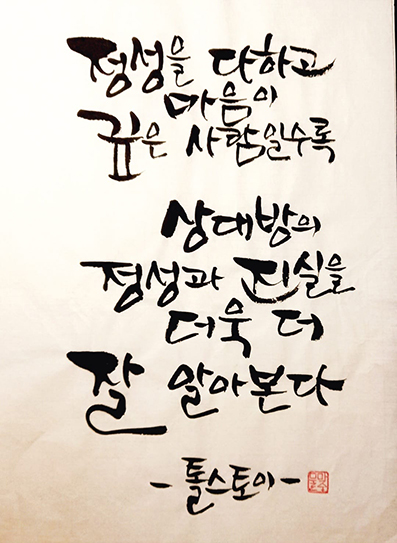 정성을 다하고
마음이
깊은 사람일수록
상대방의
정성과 진실을
더욱 더
잘 알아본다
-톨스토이-